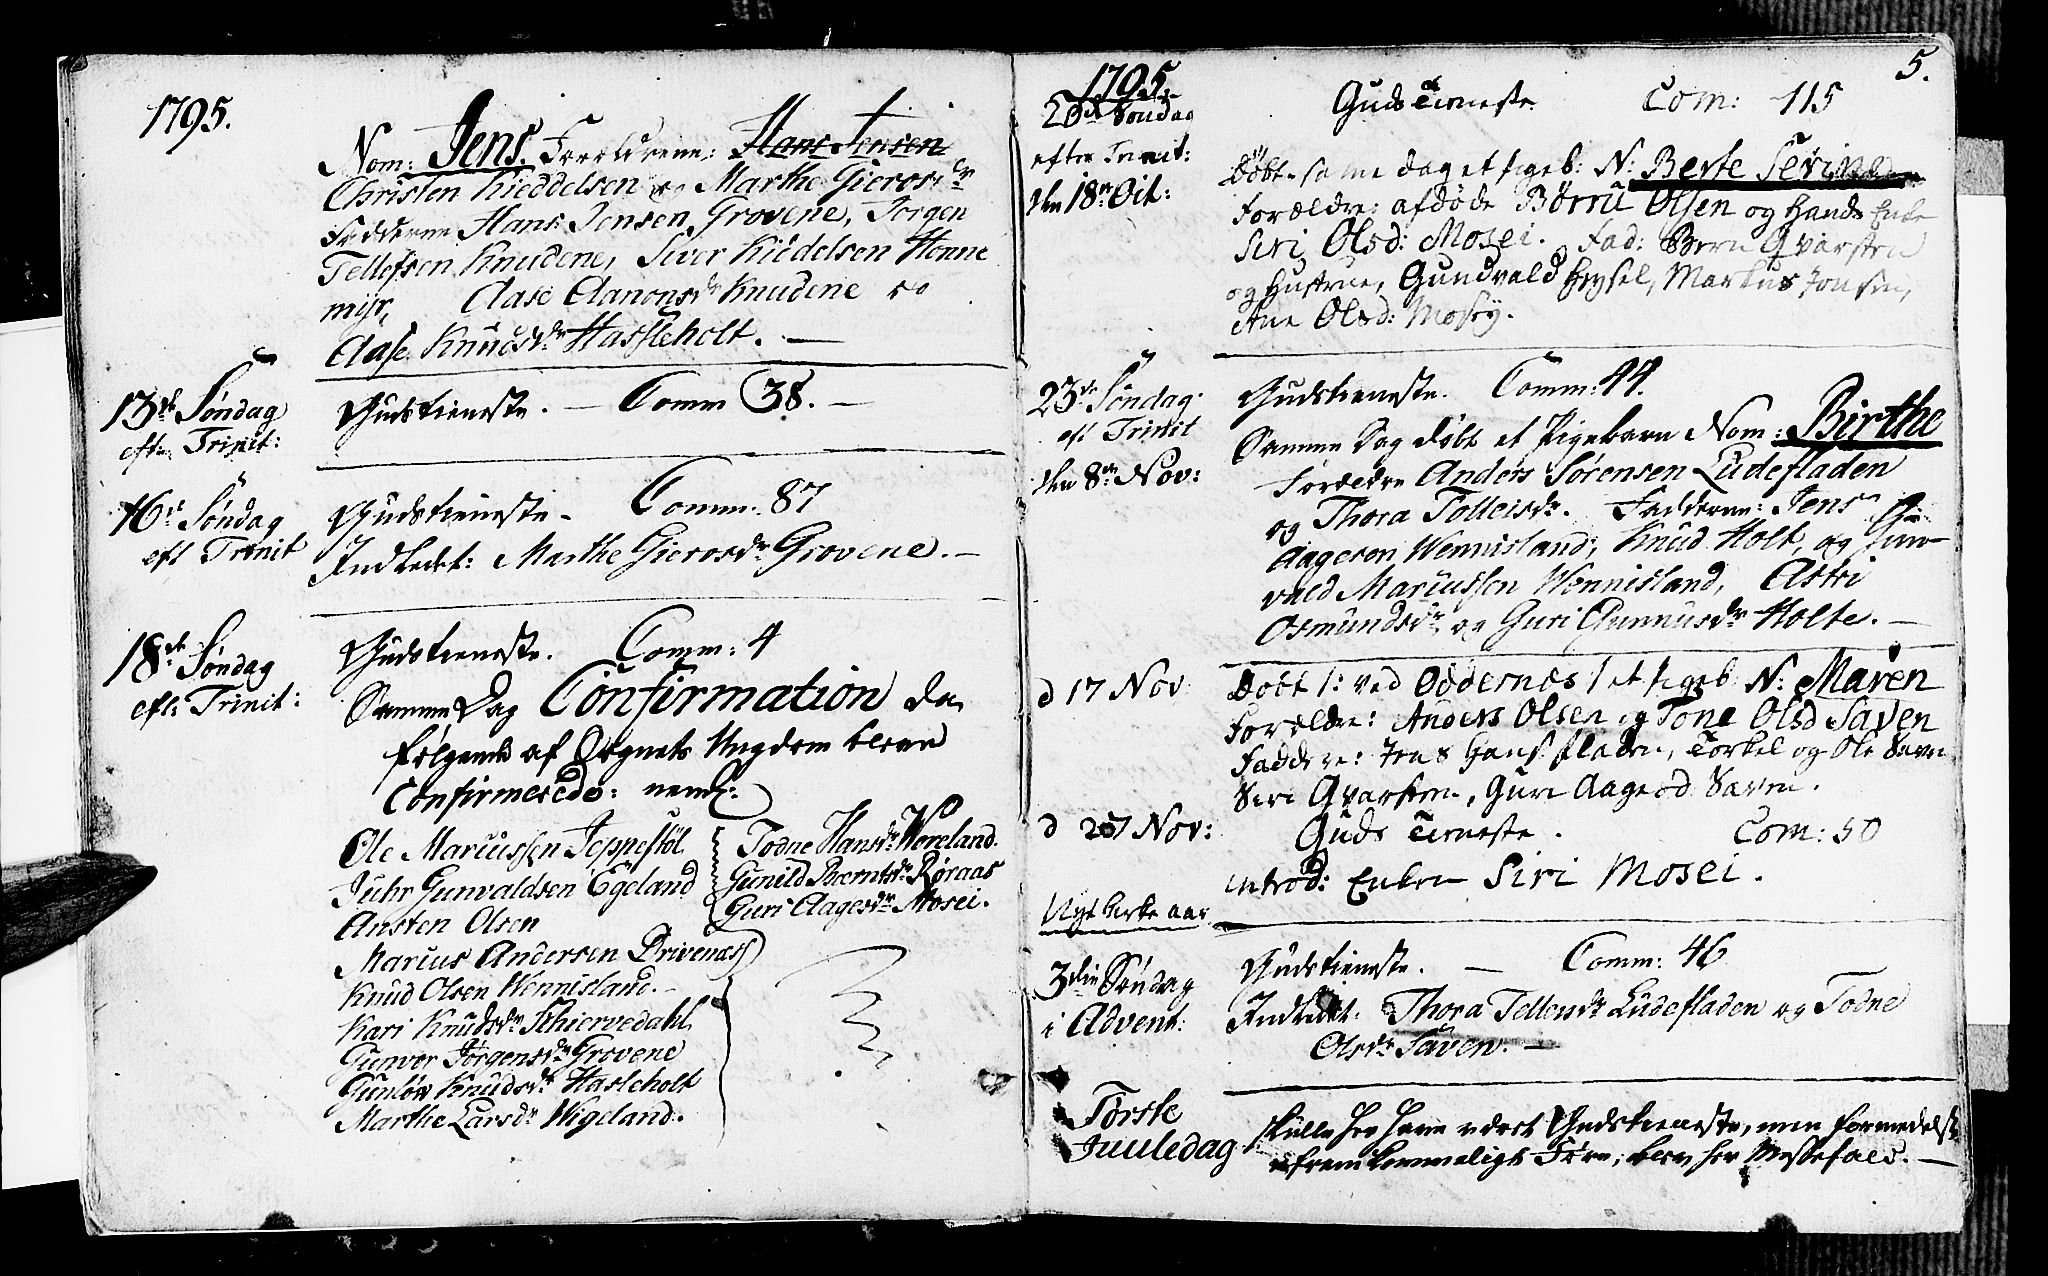 1795.
Nom: Jens. Forældrene: Hans Jensen
Christen Kieddelsen og Marthe Gierosdr
Fadderne Hans Jensen Grovene, Jørgen
Tellefsen Knudene, Siver Kieddelsen Honne
myr, Aase Aanonsdr Knudene og
Aase Knudsdr Hassleholt. —
13de Søndag
efter Trinit:
Gudstieneste. — Comm 38. —
16de Søndag
eft Trinit
Gudstieneste - Comm: 87
Indledt: Marthe Gierosdr Grovene. —
18de Søndag
eft: Trinit:
Gudstieneste. Comm: 4
Samme Dag Confirmation da
følgende af Sognets Ungdom bleve
Confirmerede: neml:
Ole Mariussen Jeppestøl
Juhr Gunvaldsen Egeland
Austen Olsen
Marius Andersen Drivenæs
Knud Olsen Wennisland. -
Kari Knudsdr Schiervedahl
Gunvor Jørgensdr Grovene
Gunlov Knudsdr Hasleholt
Marthe Larsdr Wigeland.
Todne Hansdr Woreland.
Gunild Berntsdr Røraas
Guri Aagesdr Mosei.
5.
1795.
20de Søndag
efter Trinit:
den 18de Oct:
Guds Tieneste Com: 115
Døbt samme dag et pigeb: N: Berte Serine
Forældre: afdøde Børru Olsen og Hands Enke
Siri Olsd: Mosei. Fad: Bern Qvarsten
og Hustrue, Gundvald Heysel, Markus Jonsen,
Ane Olsd: Mosey.
23de Søndag
eft Trinit
den 8de Nov:
Gudstieneste. Comm: 44.
Samme Dag døbt et Pigebarn Nom: Birthe
Forældre Anders Sørensen Ludefladen
og Thora Tolleisdr. Fadderne: Jens
Aagesen Wennisland, Knud Holt, og Gun-
vald Mariussen Wennisland, Astri
Osmundsdr og Guri Gunnusdr Holte. —
d 17 Nov
Døbt /: ved Oddernes / et pigeb N: Maren
Forældre: Anders Olsen og Tone Olsd Saven
Faddere: Jens Hans: fladen, Torkel og Ole Saven
Siri Qvarsten, Guri Aagesd Saven.
d 27 Nov:
Guds Tieneste. Com: 50
introd: Enken Siri Mosei.
Nyt kirke aar
3die Søndag
i Advent:
Gudstieneste. — Comm: 46
Indledt. Thora Tolleisdr Ludefladen og Todne
Olsdr Saven. —
Første
Juuledag
skulle her have været Gudstieneste, men formedelst
ufremkommeligt Føre, blev her Messefald. —